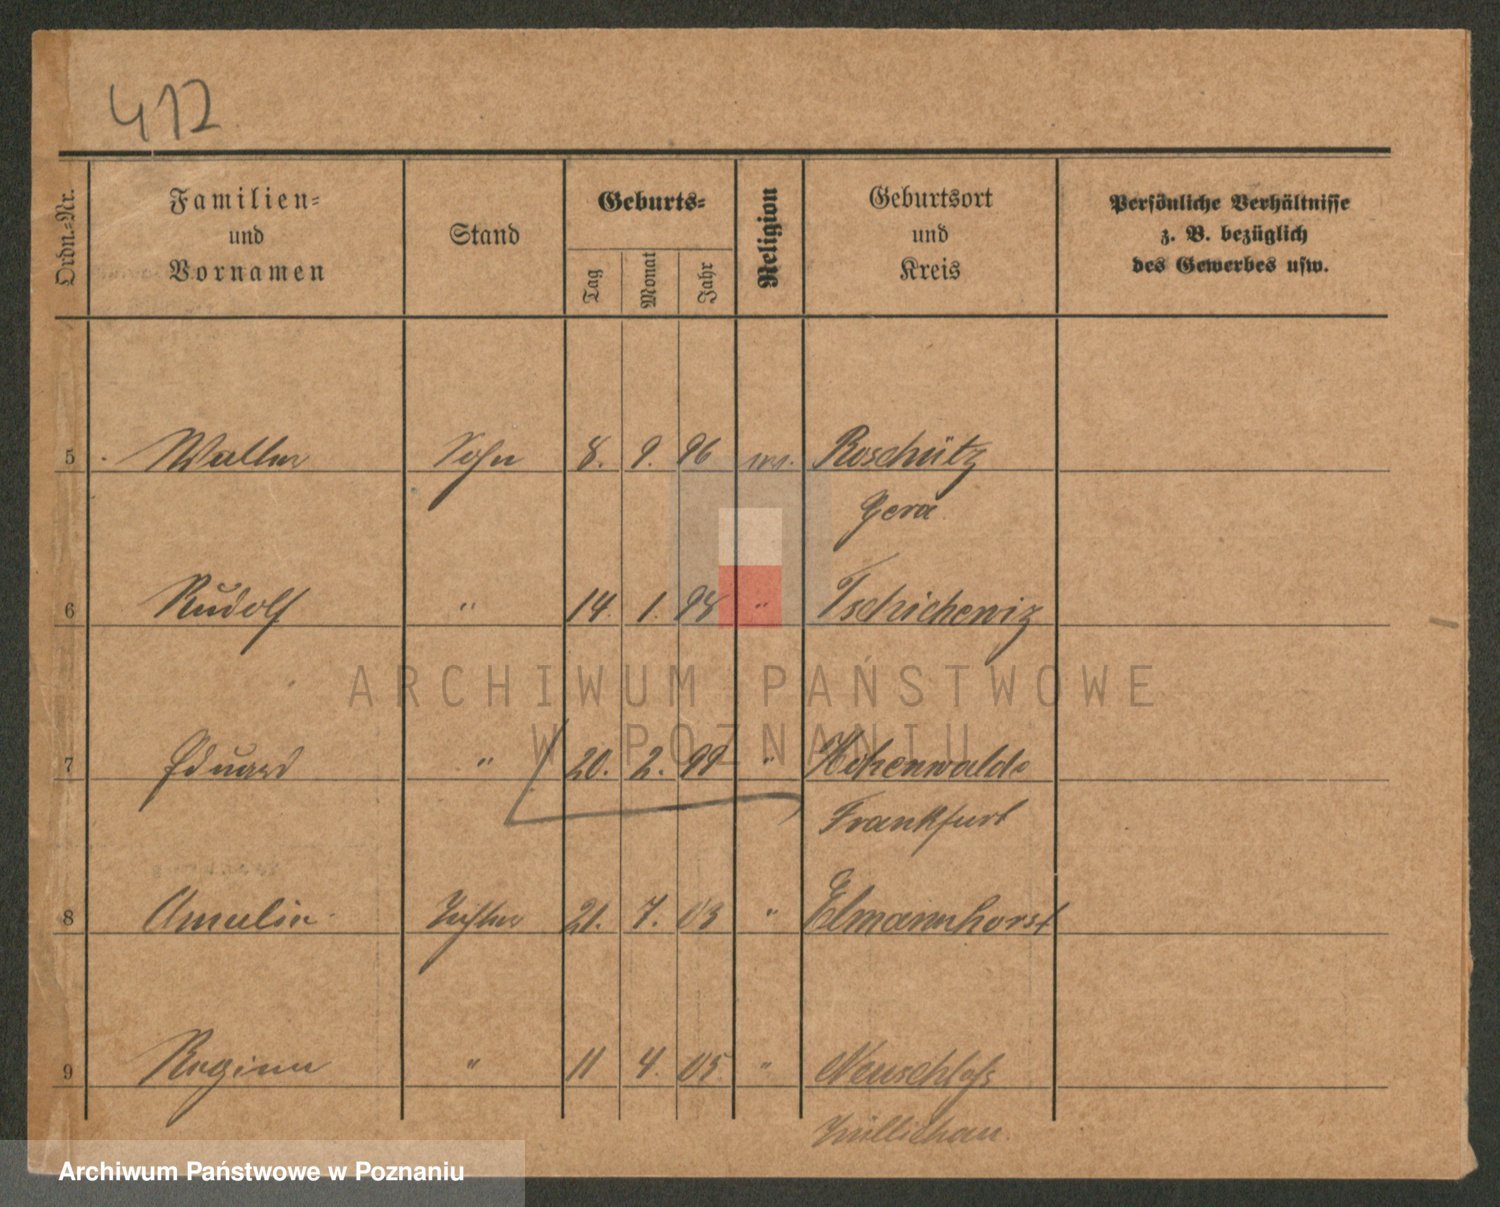 412
Ordn.-Nr.
Familien-
und
Vornamen
Stand
Geburts-
Tag
Monat
Jahr
Religion
Geburtsort
und
Kreis
Persönliche Verhältnisse
z. B. bezüglich
des Gewerbes usw.
5 Walter Sohn 8. 9. 96 ev. Roschütz
Gera
6 Rudolf " 14. 1. 98 " Tschicherzig
ARCHIWUM PAŃSTWOWE
W POZNANIU
7 Eduard " 20. 2. 99 " Hohenwalde
Frankfurt
8 Amalie Tochter 21. 7. 03 " Elmannhorst
9 Regina " 11 4. 05 "
Züllichau
Archiwum Państwowe w Poznaniu